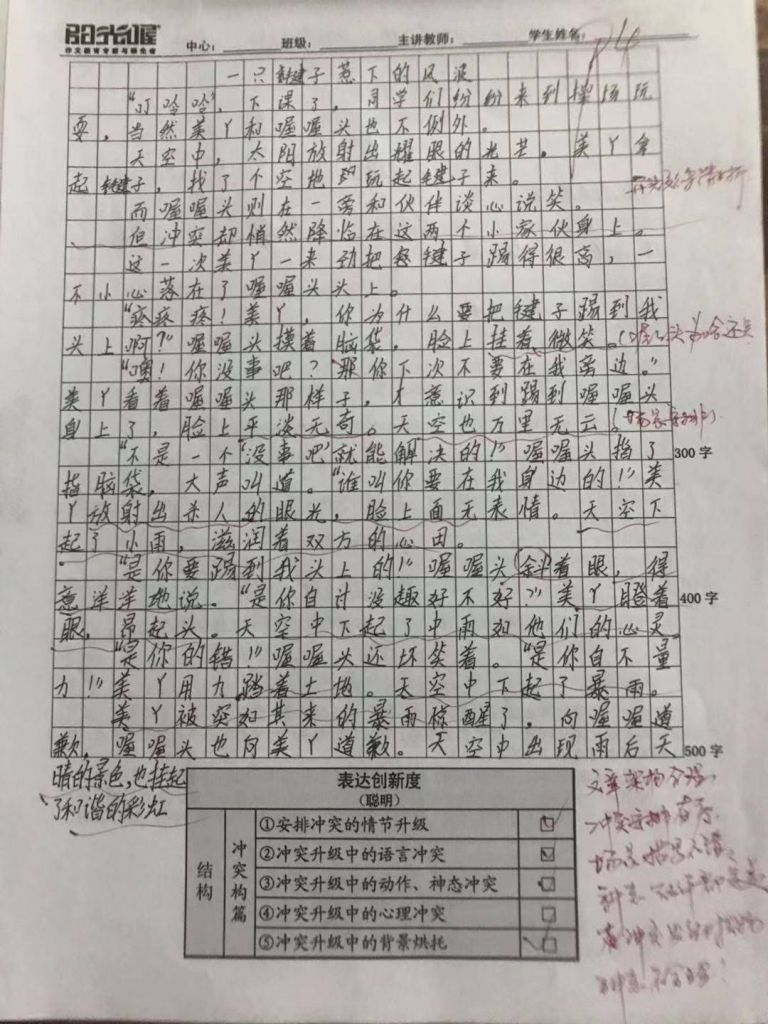 阳光喔
作文教育专家与领先者
中心： 班级： 主讲教师： 学生姓名：
一只毽子惹下的风波
“叮呤呤”，下课了，同学们纷纷来到操场玩
耍，当然美丫和喔喔头也不例外。
天空中，太阳放射出耀眼的光芒。美丫拿
起毽子，找了个空地玩起毽子来。
而喔喔头则在一旁和伙伴谈心说笑。
但冲突却悄然降临在这两个小家伙身上。
这一次美丫一来劲把毽子踢得很高，一
不小心落在了喔喔头头上。
“疼疼疼！美丫，你为什么要把毽子踢到我
头上啊？”喔喔头摸着脑袋，脸上挂着微笑。
“噢！你没事吧？那你下次不要在我旁边。”
美丫看着喔喔头那样子，才意识到踢到喔喔头
身上了，脸上平淡无奇。天空也万里无云。
“不是一个‘没事吧’就能解决的！”喔喔头指了 300字
指脑袋，大声叫道。“谁叫你要在我身边的！”美
丫放射出杀人的眼光，脸上面无表情。天空下
起了小雨，滋润着双方的心田。
“是你要踢到我头上的！”喔喔头斜着眼，得
意洋洋地说。“是你自讨没趣好不好？”美丫瞪着 400字
眼，昂起头。天空中下起了中雨如他们的心灵。
“是你的错！”喔喔头还坏笑着。“是你自不量
力！”美丫用力踏着土地。天空中下起了暴雨。
美丫被突如其来的暴雨惊醒了。向喔喔道
歉，喔喔头也向美丫道歉。天空中出现雨后天 500字
晴的景色，也挂起
了和谐的彩虹
表达创新度
（聪明）
结构
冲突构篇
①安排冲突的情节升级
②冲突升级中的语言冲突
③冲突升级中的动作、神态冲突
④冲突升级中的心理冲突
⑤冲突升级中的背景烘托